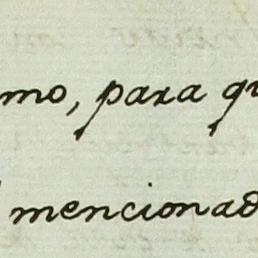 mo, para qu
mencionad